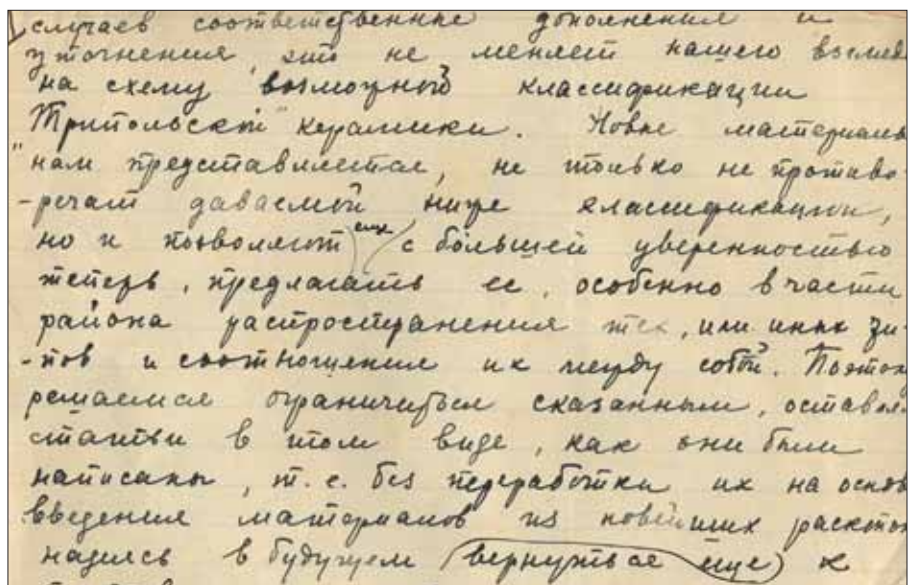 случаев соответственные дополнения и
уточнения, это не меняет нашего взгляда
на схему возможной классификации
Трипольской керамики. Новые материалы
нам представляется, не только не противо-
-речат даваемой ниже классификации,
но и позволяют еще с большей уверенностью
теперь, предлагать ее, особенно в части
района распространения тех, или иных ти-
-пов и соотношения их между собой. Поэтом
решаемся ограничиться сказанным, оставляя
статьи в том виде, как они были
написаны, т.е. без переработки их на основ
введения материалов из новейших раскопок
надеясь в будущем (вернуться еще) к